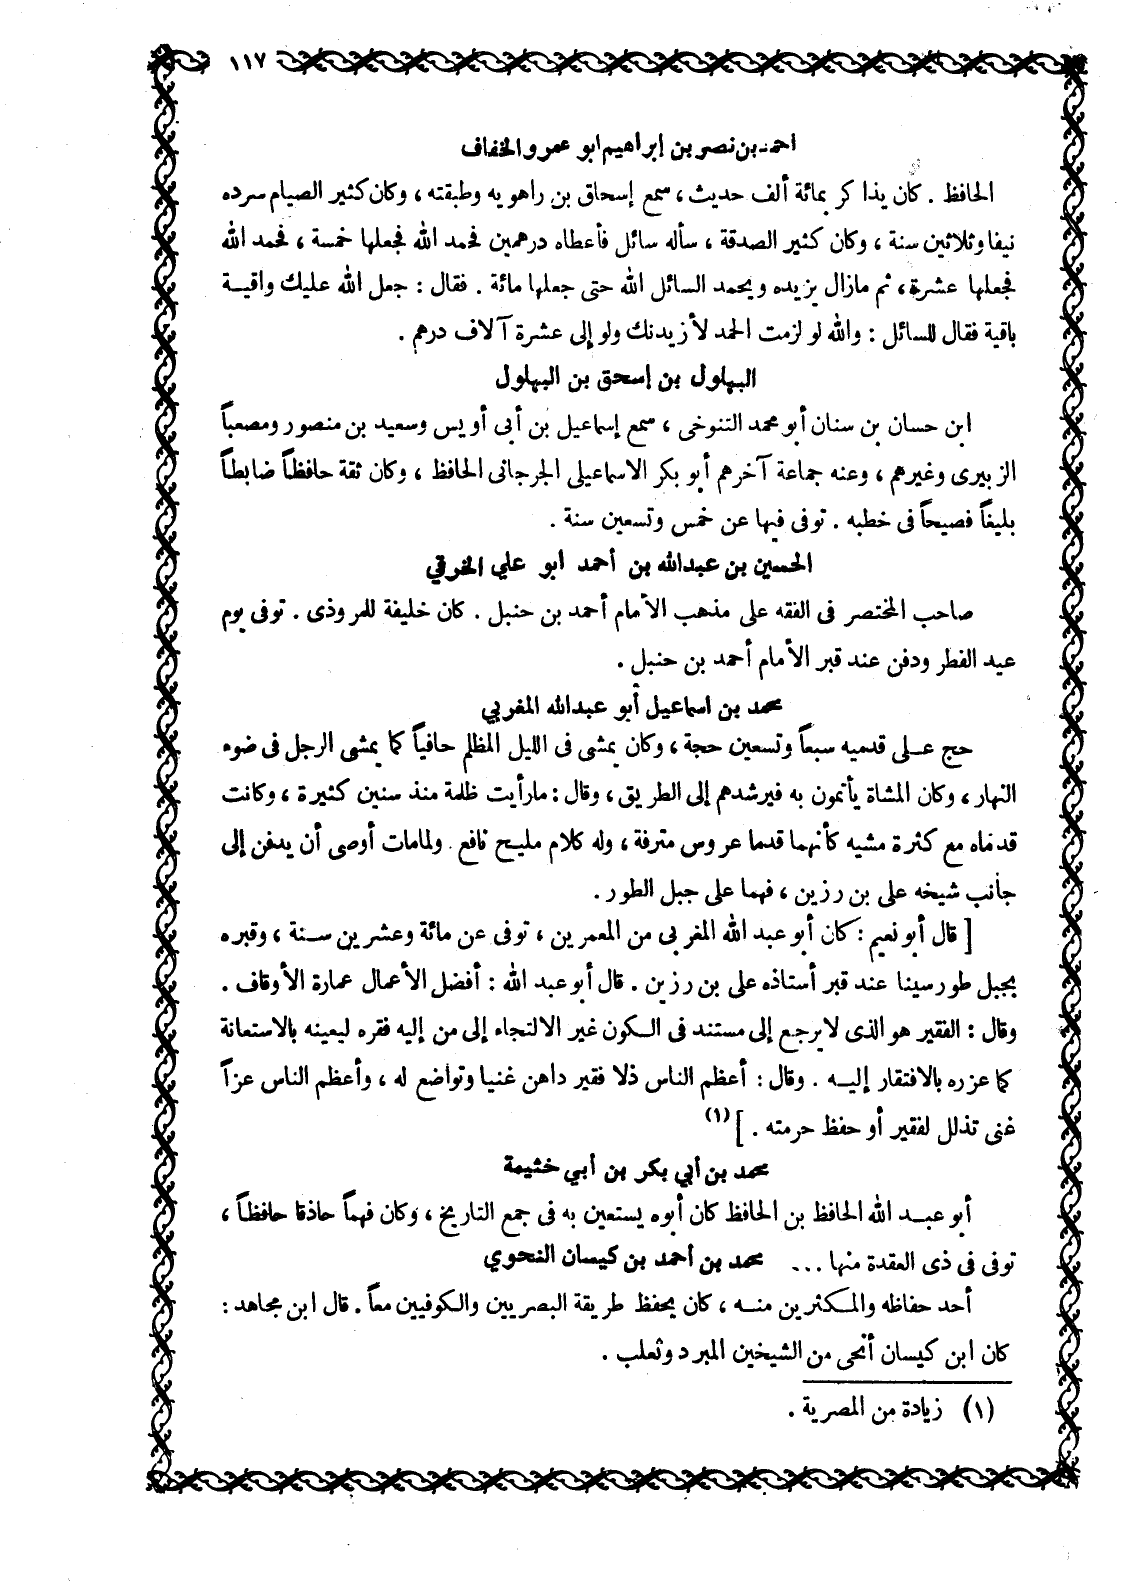 ١١٧
احمد بن نصر بن إبراهيم ابو عمرو الخفاف
الحافظ . كان يذاكر بمائة ألف حديث ، سمع إسحاق بن راهويه وطبقته ، وكان كثير الصيام سرده
نيفا وثلاثين سنة ، وكان كثير الصدقة ، سأله سائل فأعطاه درهمين فحمد الله فجعلها خمسة ، فحمد الله
فجعلها عشرة ، ثم مازال يزيده ويحمد السائل الله حتى جعلها مائة . فقال : جعل الله عليك واقيــة
باقية فقال للسائل : والله لو لزمت الحمد لأزيدنك ولو إلى عشرة آلاف درهم .
البهلول بن إسحق بن البهلول
ابن حسان بن سنان أبو محمد التنوخى ، سمع إسماعيل بن أبى أويس وسعيد بن منصور ومصعباً
الزبيرى وغيرهم ، وعنه جماعة آخرهم أبو بكر الاسماعيلى الجرجانى الحافظ ، وكان ثقة حافظاً ضابطاً
بليغاً فصيحاً فى خطبه . توفى فيها عن خمس وتسعين سنة .
الحسين بن عبدالله بن أحمد ابو علي الخرقي
صاحب المختصر فى الفقه على مذهب الأمام أحمد بن حنبل . كان خليفة للمروذى . توفى يوم
عيد الفطر ودفن عند قبر الأمام أحمد بن حنبل .
محمد بن اسماعيل أبو عبدالله المغربي
حج عــلى قدميه سبعاً وتسعين حجة ، وكان يمشى فى الليل المظلم حافياً كما يمشى الرجل فى ضوء
النهار ، وكان المشاة يأتمون به فيرشدهم إلى الطريق ، وقال : مارأيت ظلمة منذ سنين كثيرة ، وكانت
قدماه مع كثرة مشيه كأنهما قدما عروس مترفة ، وله كلام مليح نافع . ولمامات أوصى أن يدفن إلى
جانب شيخه على بن رزين ، فهما على جبل الطور .
[ قال أبو نعيم : كان أبو عبد الله المغربى من المعمرين ، توفى عن مائة وعشرين سـنة ، وقبره
بجبل طورسينا عند قبر أستاذه على بن رزين . قال أبو عبد الله : أفضل الأعمال عمارة الأوقاف .
وقال : الفقير هو الذى لايرجع إلى مستند فى الـكون غير الالتجاء إلى من إليه فقره ليعينه بالاستعانة
كما عزره بالافتقار إليــه . وقال : أعظم الناس ذلا فقير داهن غنيا وتواضع له ، وأعظم الناس عزاً
غنى تذلل لفقير أو حفظ حرمته . ] (١)
محمد بن أبي بكر بن أبي خثيمة
أبو عبــد الله الحافظ بن الحافظ كان أبوه يستعين به فى جمع التاريخ ، وكان فهماً حاذقا حافظاً ،
توفى فى ذى العقدة منها ... محمد بن أحمد بن كيسان النحوي
أحد حفاظه والمـكثرين منــه ، كان يحفظ طريقة البصريين والكوفيين معاً . قال ابن مجاهد :
كان ابن كيسان أنحى من الشيخين المبرد وثعلب .
(١) زيادة من المصرية .